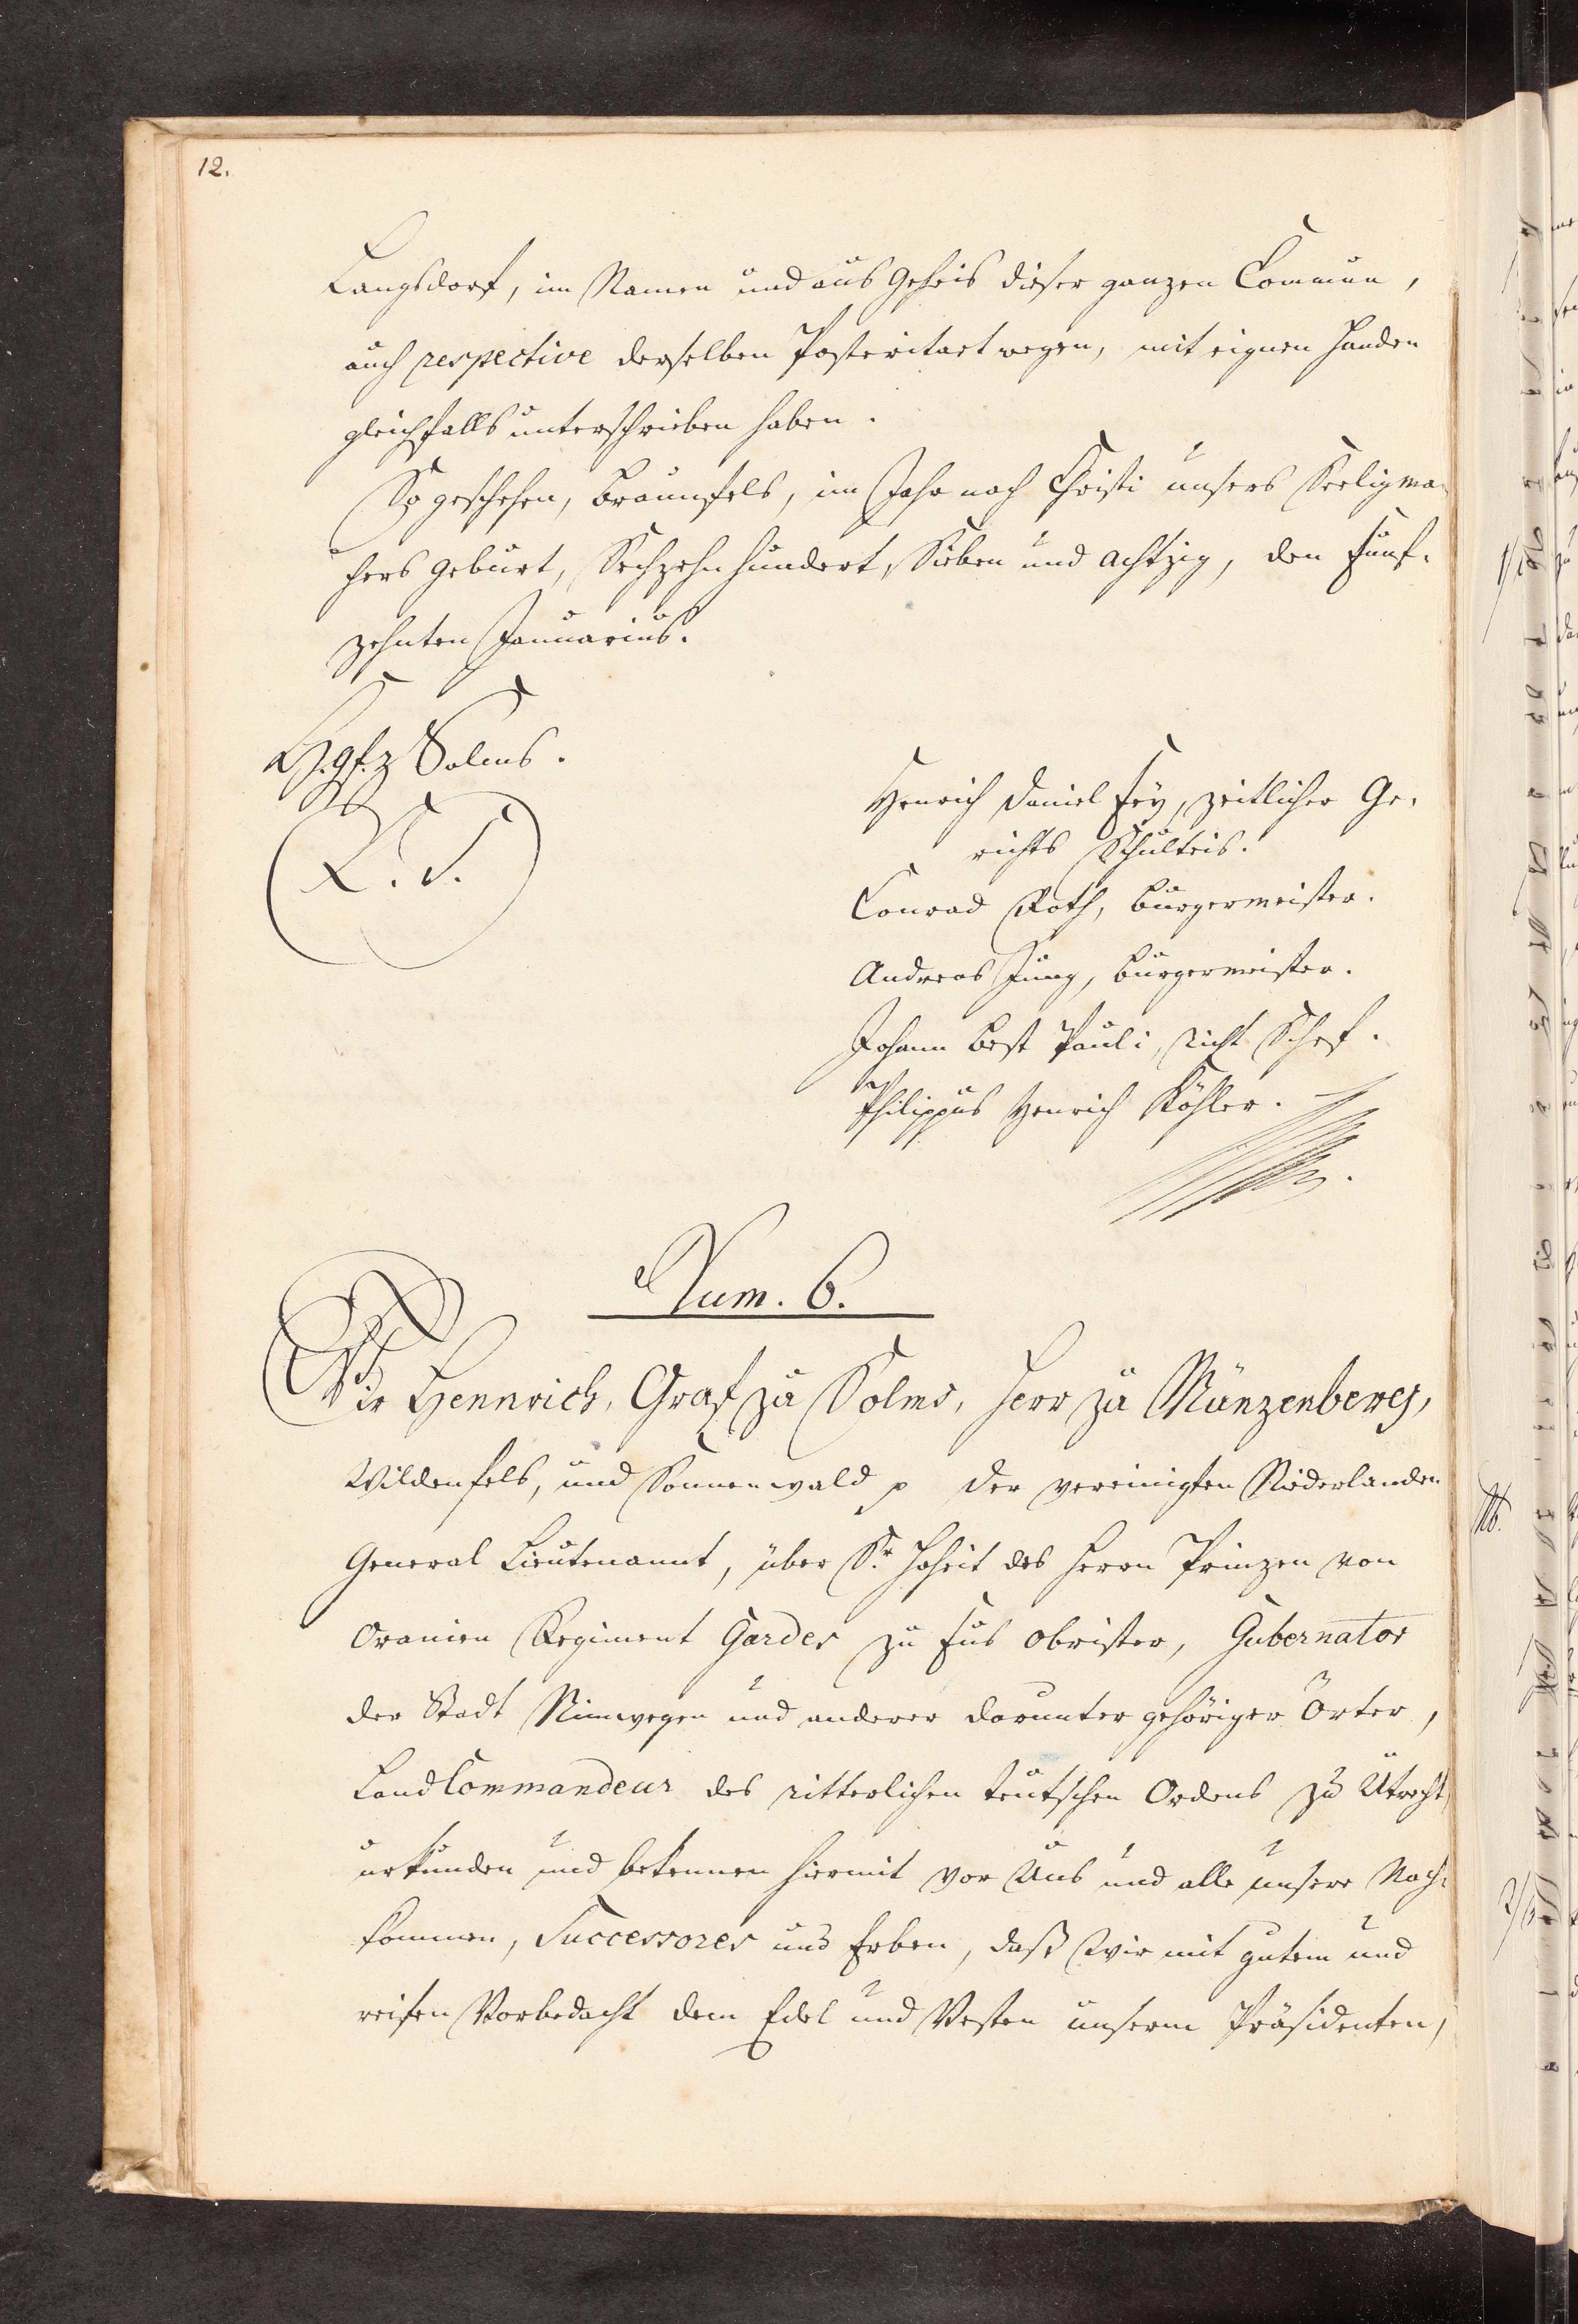 12.
Langsdorf, im Namen und aus Geheis dieser ganzen Commun,
auch respective derselben Posteritaet wegen, mit eignen Handen
gleichfalls unterschrieben haben.
So geschehen, Braunfels, im Jahr nach Christi unsers Seeligma-
chers Geburt, Sechzehnhundert, Sieben und achtzig, den Funf-
zehnten Januarius.
H. gf. z Solms.
L. S.
Henrich Daniel Fey, zeitlicher Ge-
richts Schulteis.
Conrad Roth, Burgermeister.
Andreas Jung, Burgermeister.
Johann Best Pauli, Richt Schef.
Philippus Henrich Köhler.
Num. 6.
Wir Hennrich, Graf zu Solms, Herr zu Münzenberg,
Wildenfels, und Sonnenwald p der vereinigten Niederlanden
General Lieutenannt, über Sr. Hoheit des Herrn Prinzen von
Oranien Regiment Gardes zu Fus Obrister, Gubernator
der Stadt Nimwegen und anderer darunter gehöriger Örter,
Land Commandeur des ritterlichen teutschen Ordens zu Utrecht,
urkunden und bekennen hiermit vor Uns und alle unsere Nach-
kommen, Successores und Erben, daß Wir mit gutem und
reifen Vorbedacht dem Edel und Vesten unserm Präsidenten,